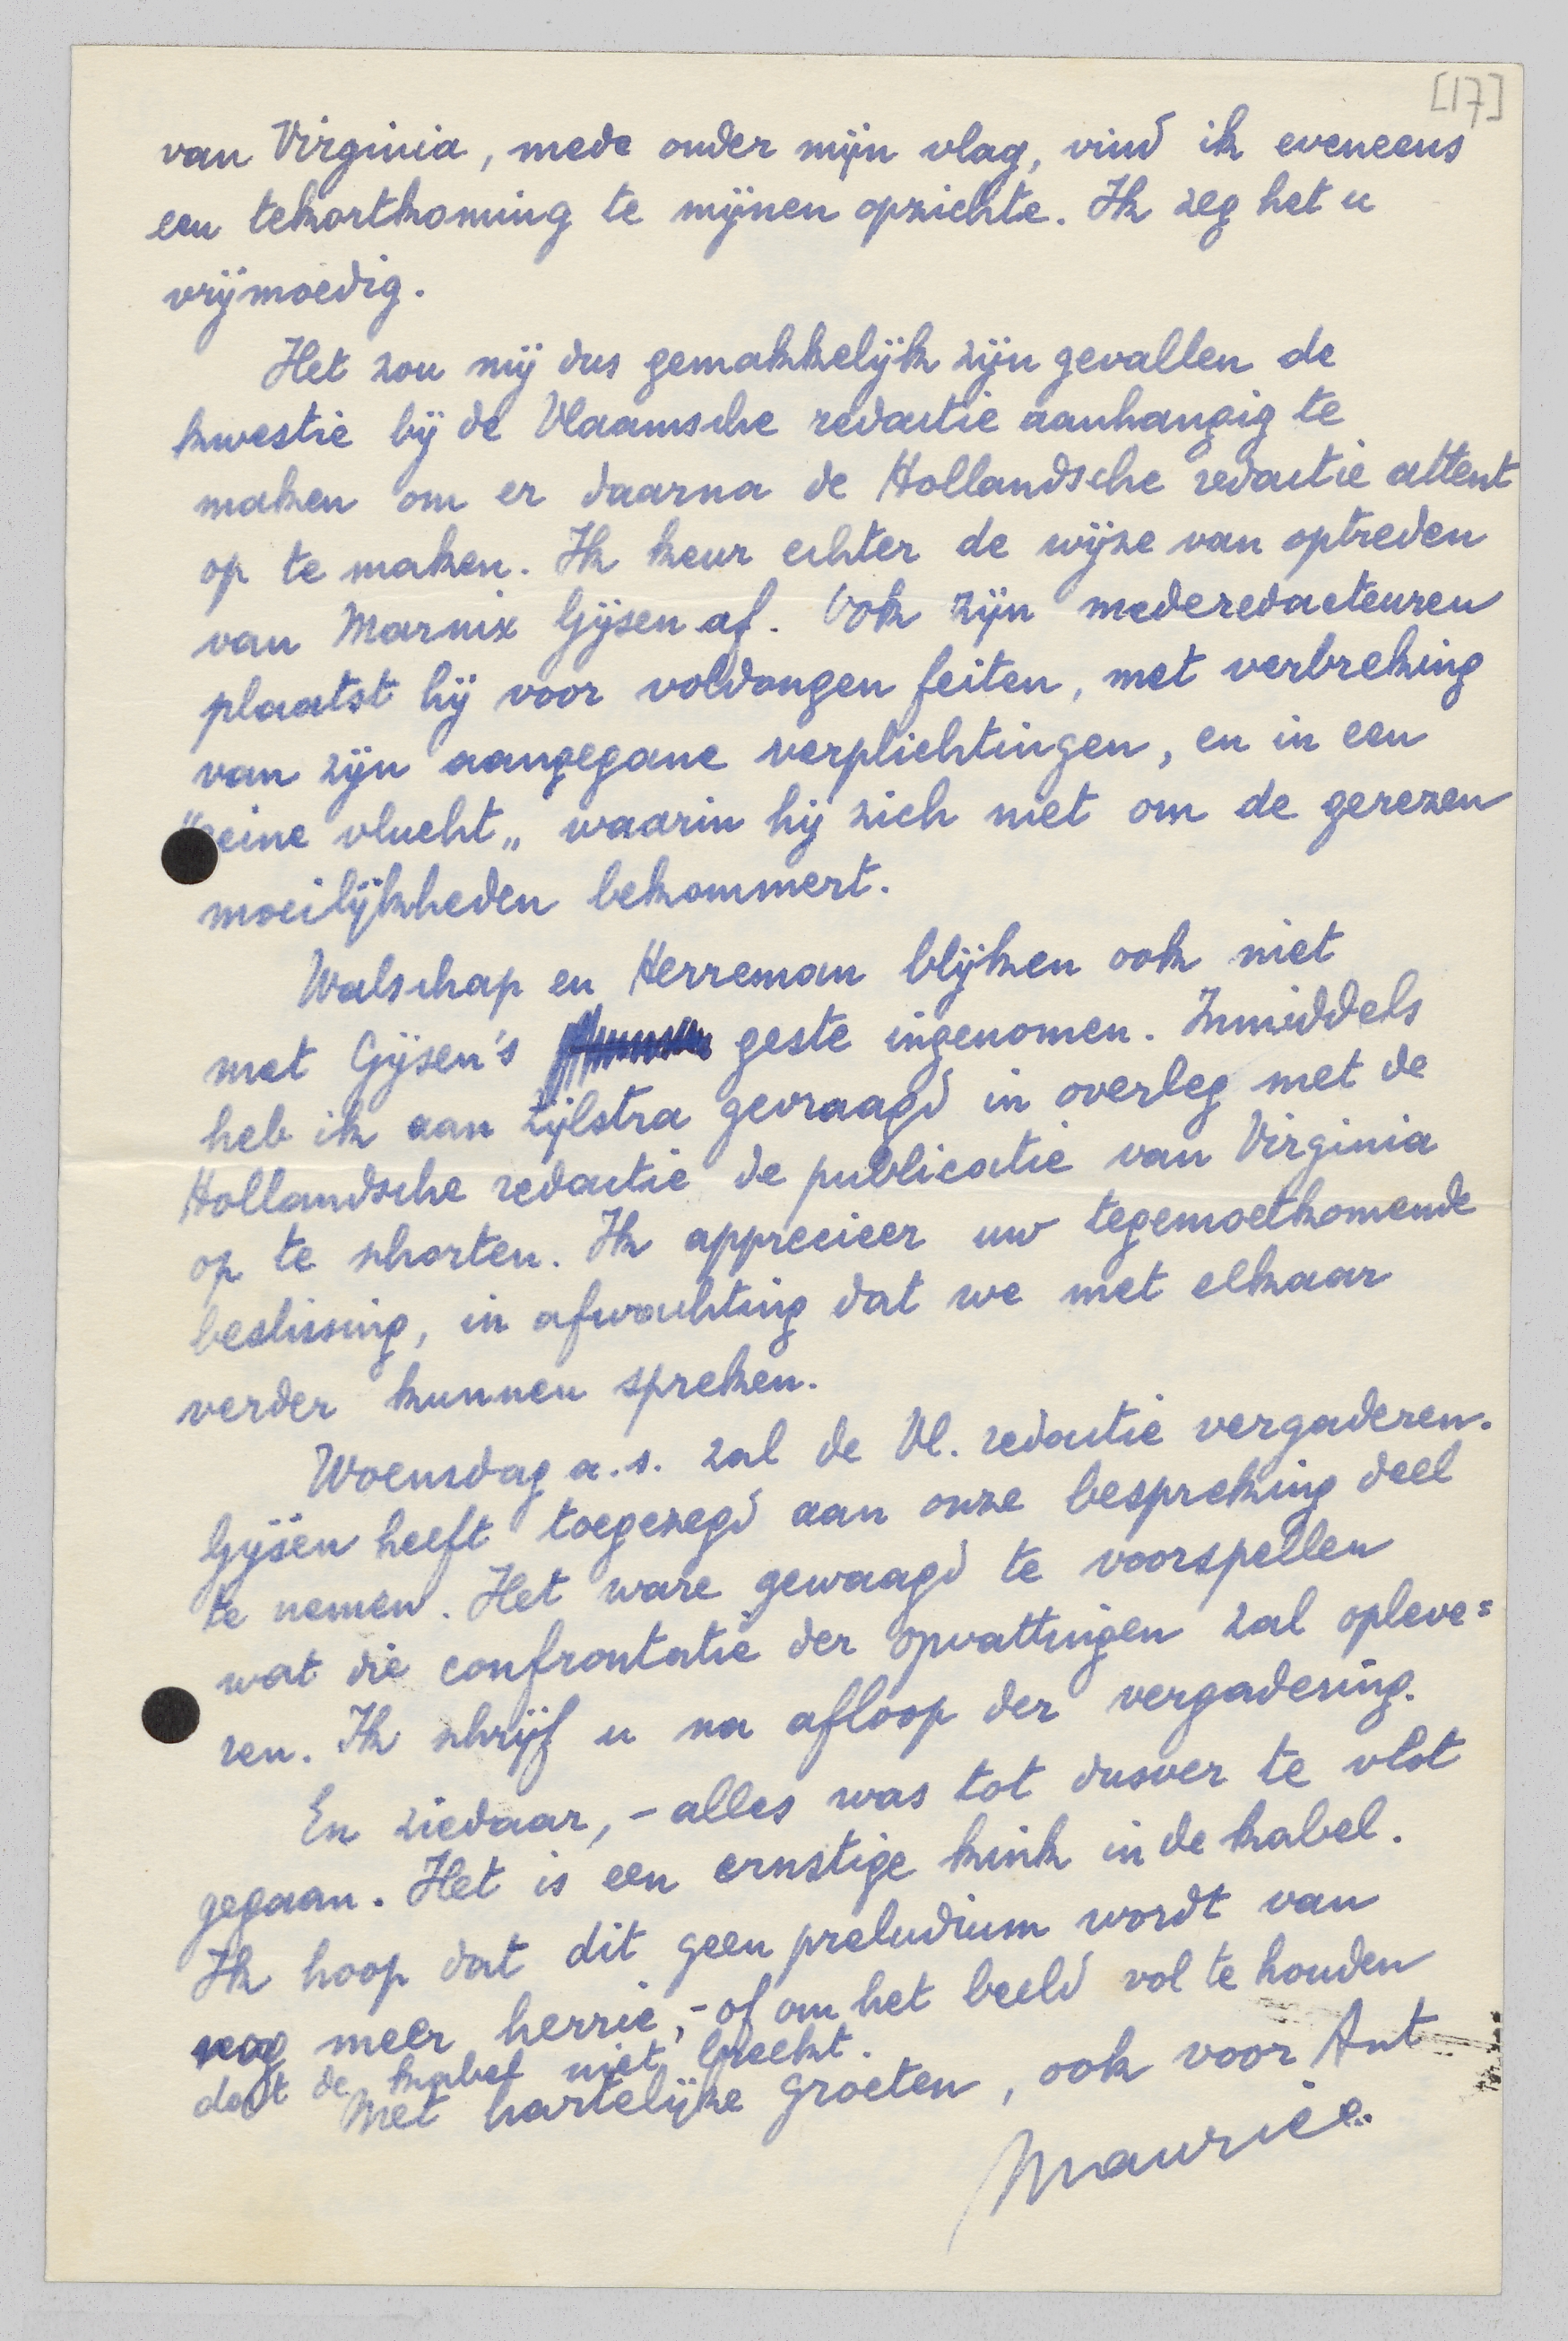 [17]
van Virginia, mede onder mijn vlag, vind ik eveneens
een tekortkoming te mijnen opzichte. Ik zeg het u
vrijmoedig.
Het zou mij dus gemakkelijk zijn gevallen de
kwestie bij de Vlaamsche redactie aanhangig te
maken om er daarna de Hollandsche redactie attent
op te maken. Ik keur echter de wijze van optreden
van Marnix Gijsen af. Ook zijn mederedacteuren
plaatst hij voor voldongen feiten, met verbreking
van zijn aangegane verplichtingen, en in een
"reine vlucht„ waarin hij zich niet om de gerezen
moeilijkheden bekommert.
Walschap en Herreman blijken ook niet
met Gijsen's geste ingenomen. Inmiddels
heb ik aan Zijlstra gevraagd in overleg met de
Hollandsche redactie de publicatie van Virginia
op te schorten. Ik apprecieer uw tegemoetkomende
beslissing, in afwachting dat we met elkaar
verder kunnen spreken.
Woensdag a.s. zal de Vl. redactie vergaderen.
Gijsen heeft toegezegd aan onze bespreking deel
te nemen. Het ware gewaagd te voorspellen
wat die confrontatie der opvattingen zal opleve=
ren. Ik schrijf u na afloop der vergadering.
En ziedaar, - alles was tot dusver te vlot
gegaan. Het is een ernstige kink in de kabel.
Ik hoop dat dit geen preludium wordt van
nog meer herrie, - of om het beeld vol te houden
dat de kabel niet breekt.
Met hartelijke groeten, ook voor Ant
Maurice